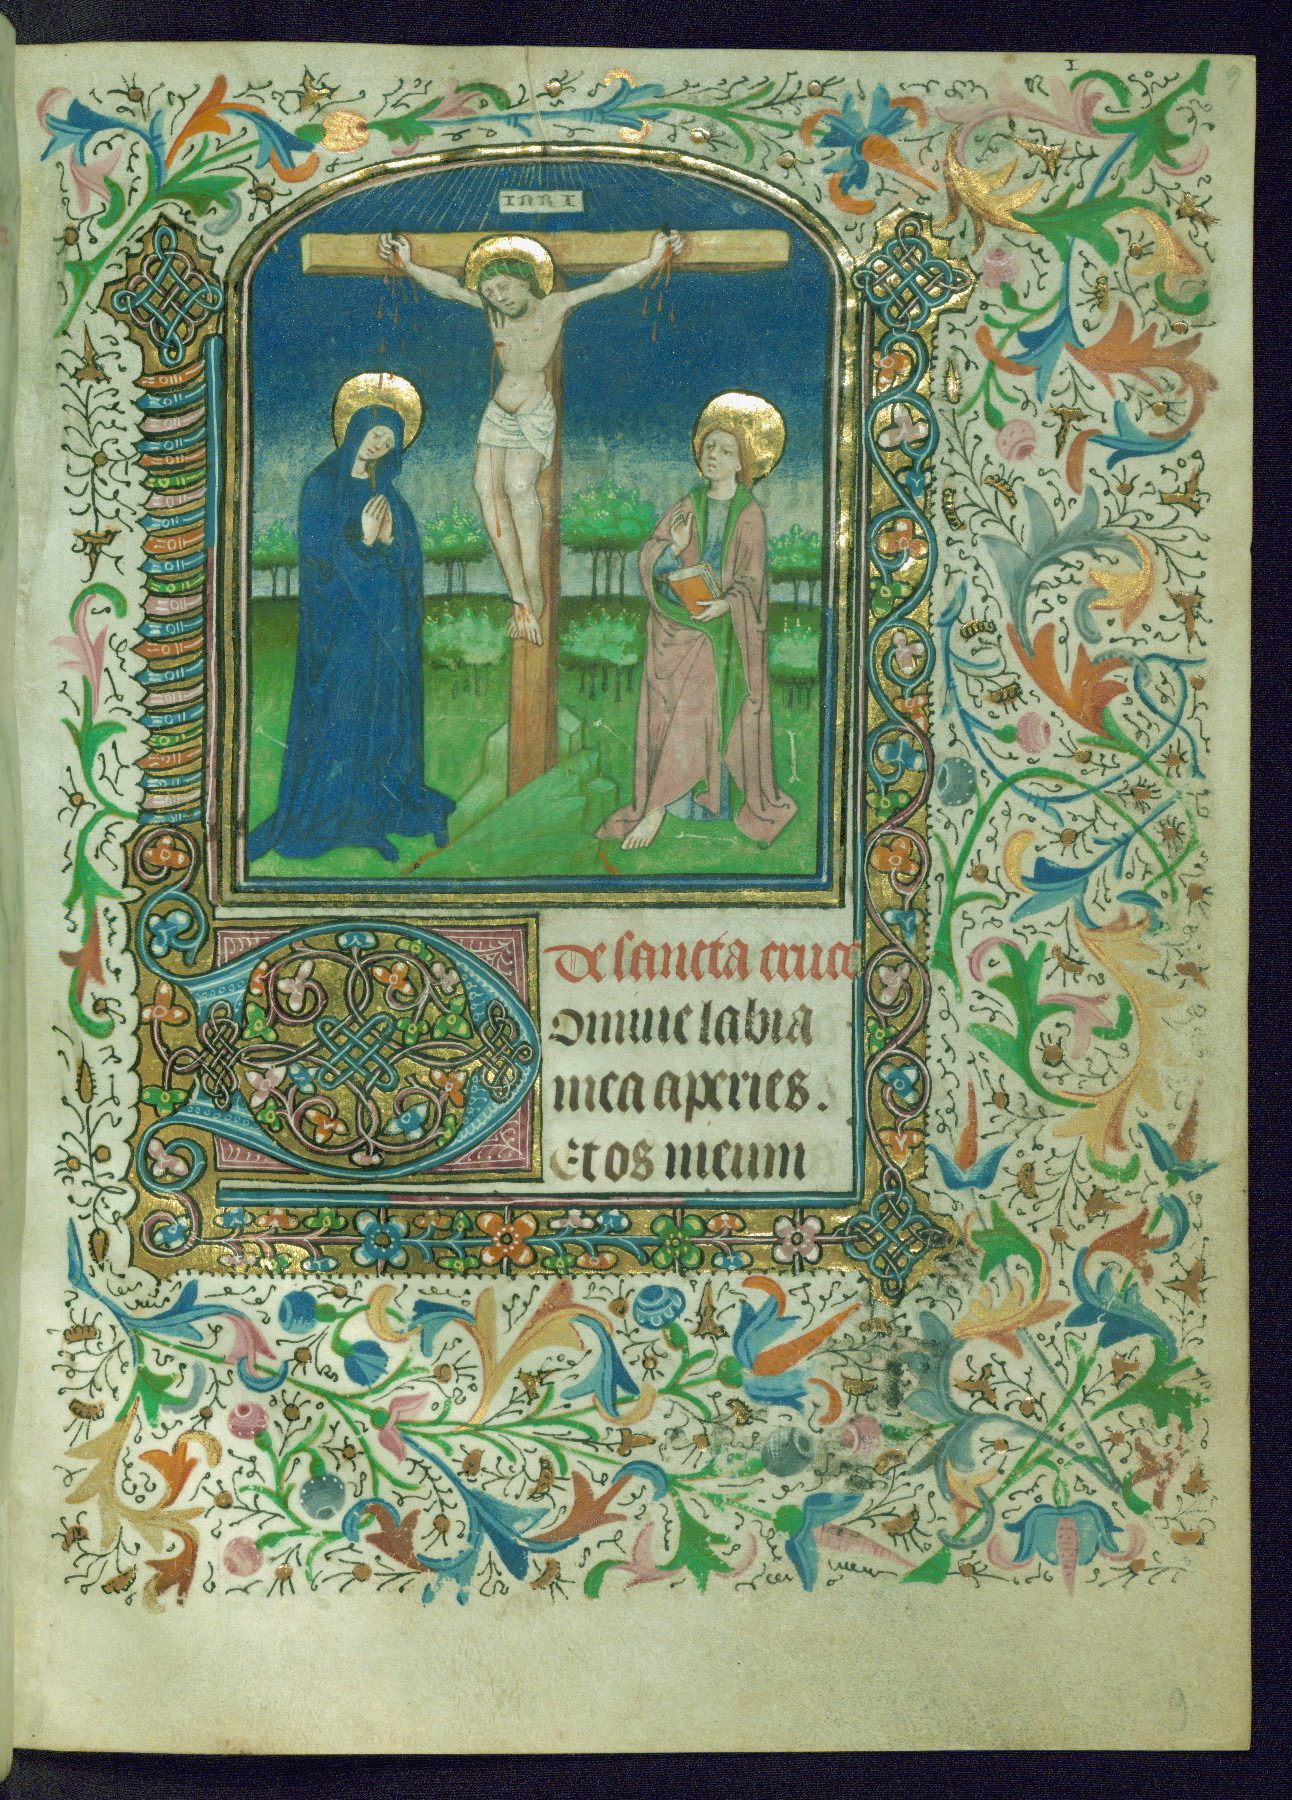 I
9
INRI
De sancta cruce
Domine labia
mea aperies.
Et os meum
9